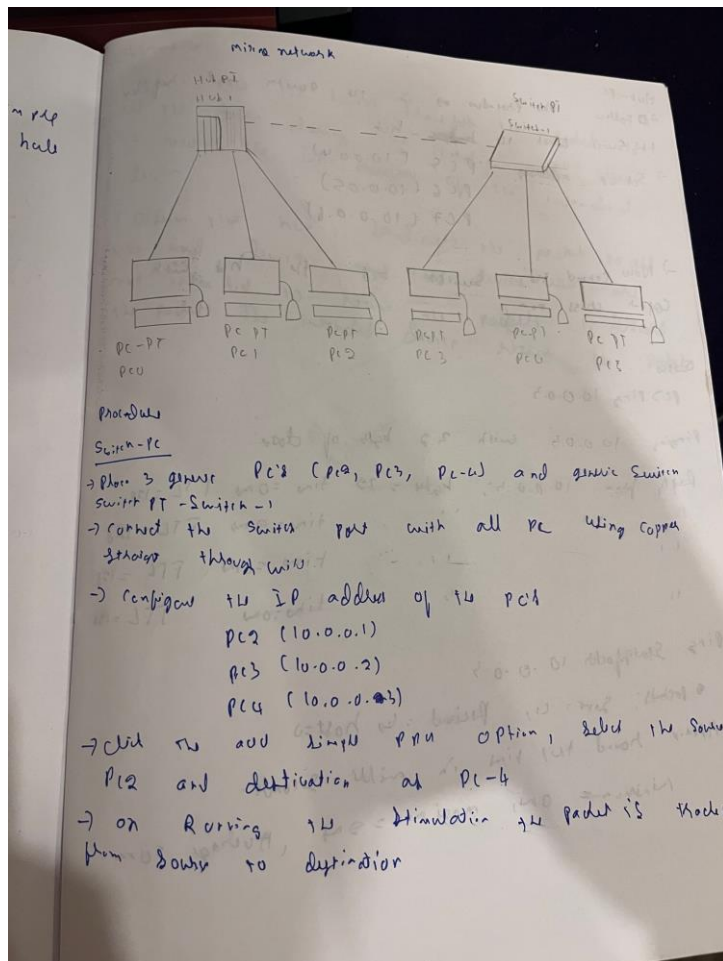 mple
hale
mixed network
Hub PT
Hub 1
Switch PT
Switch-1
PC-PT PC PT PCPT PCPT PCPT PC PT
PC0 PC1 PC2 PC3 PC4 PC5
Procedure
Switch-PC
→ Place 3 generic PC's (PC2, PC3, PC-4) and generic Switch
Switch PT - Switch-1
→ Connect the Switch port with all PC using Copper
straight through wire
→ Configure the IP address of the PC's
PC2 (10.0.0.1)
PC3 (10.0.0.2)
PC4 (10.0.0.3)
→ Click the add simple PDU option, select the source
PC2 and destination as PC-4
→ on Running the stimulation the packet is
from source to destination